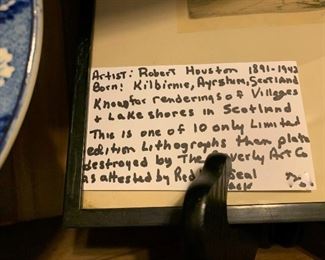 Artist: Robert Houston 1891-1942
Born: Kilbirnie, Ayrshire, Scotland
Known for renderings of Villages
+ Lakeshores in Scotland
This is one of 10 only Limited
edition Lithographs then plate
destroyed by The Art Co
as attested by Red Seal